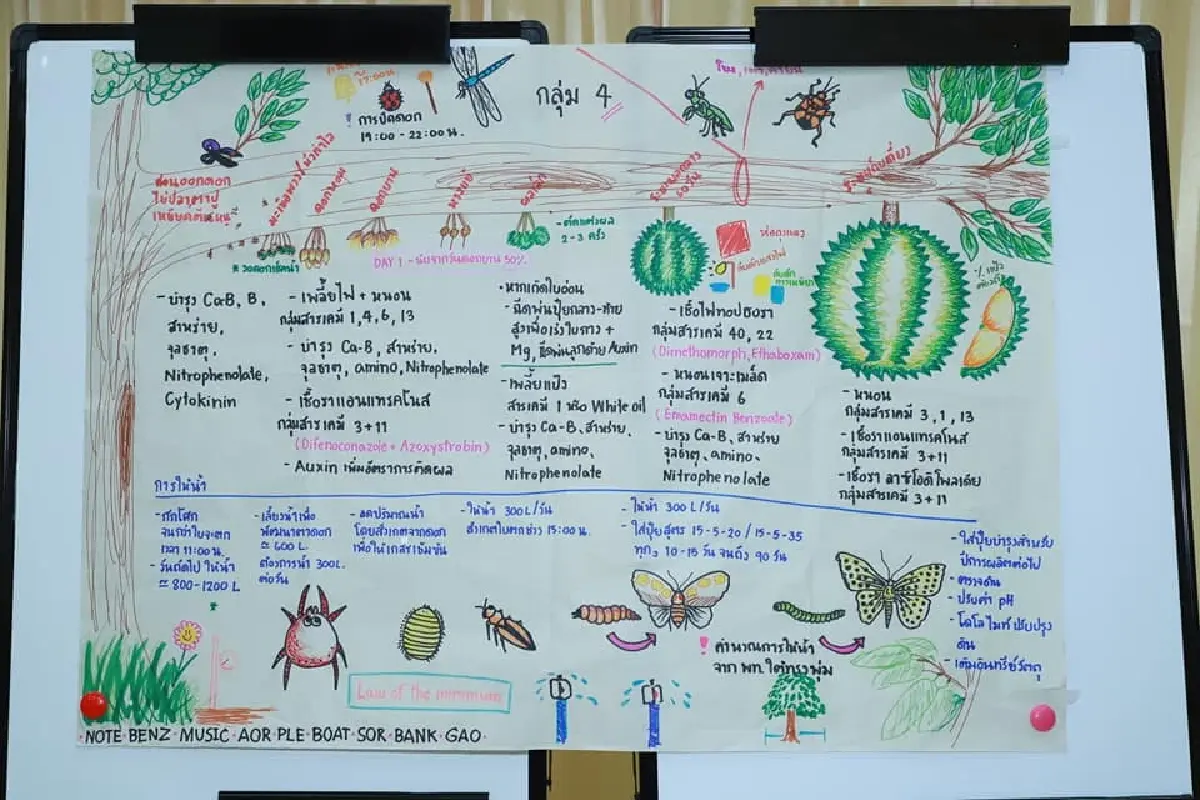 กลุ่ม 4
17:00น.
! การบัดดอก
19:00 - 22:00 น.
ก่อนออกดอก
ดอกหอม
ดอกบาน
หางแย้
DAY 1 - นับจากวันดอกบาน 50%
- ตัดแต่งผล
2-3 ครั้ง
ห่อถุงแดง
- บำรุง Ca-B, B,
สาหร่าย,
จุลธาตุ,
Nitrophenolate,
Cytokinin
- เพลี้ยไฟ + หนอน
กลุ่มสารเคมี 1,4,6,13
- บำรุง Ca-B, สาหร่าย,
จุลธาตุ, amino, Nitrophenolate
- เชื้อราแอนแทรคโนส
กลุ่มสารเคมี 3+11
(Difenoconazole + Azoxystrobin)
- Auxin เพิ่มอัตราการติดผล
• หากเกิดใบอ่อน
- ฉีดพ่นปุ๋ยกลาง-ท้าย
สูงเพื่อเร่งใบกาง +
Mg, ฉีดพ่นลูกด้วย Auxin
- เพลี้ยแป้ง
สารเคมี 1 หรือ White oil
- บำรุง Ca-B, สาหร่าย,
จุลธาตุ, amino,
Nitrophenolate
- เชื้อไฟทอปธอรา
กลุ่มสารเคมี 40, 22
(Dimethomorph, Ethaboxam)
- หนอนเจาะเมล็ด
กลุ่มสารเคมี 6
(Emamectin Benzoate)
- บำรุง Ca-B, สาหร่าย
จุลธาตุ, amino,
Nitrophenolate
- หนอน
กลุ่มสารเคมี 3, 1, 13
- เชื้อราแอนแทรคโนส
กลุ่มสารเคมี 3+11
- เชื้อรา ลาซิโอดิโพลเดีย
กลุ่มสารเคมี 3+11
การให้น้ำ
- กักโศก
จนกว่าใบจะตก
เวลา 11:00 น.
- วันถัดไป ให้น้ำ
≈ 800-1200 L
- เลี้ยงน้ำเพื่อ
พัฒนาตาดอก
≈ 600 L
ต้องการน้ำ 300L.
ต่อวัน
- ลดปริมาณน้ำ
โดยสังเกตจากดอก
เพื่อให้เกสรเข้มข้น
- ให้น้ำ 300 L/วัน
สังเกตใบตกช่วง 15:00 น.
- ให้น้ำ 300 L/วัน
- ใส่ปุ๋ยสูตร 15-5-20 / 15-5-35
ทุกๆ 10-15 วัน จนถึง 90 วัน
- ใส่ปุ๋ยบำรุงสำหรับ
ปีการผลิตต่อไป
- ตรวจดิน
- ปรับค่า pH
- โดโลไมท์ ปรับปรุง
ดิน
- เติมอินทรีย์วัตถุ
! คำนวณการให้น้ำ
จาก พท. ใต้ทรงพุ่ม
Law of the minimum
NOTE · BENZ · MUSIC · AOR · PLE · BOAT · SOR · BANK · GAO